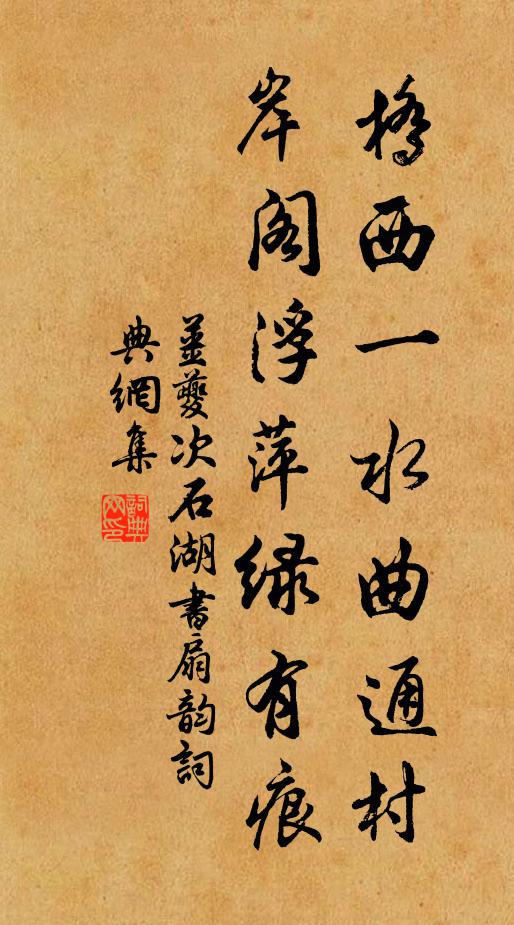 橋西一水曲通村
岸閣浮萍緑有痕
姜夔次石湖書扇韵詞
典網集
詞典
网印